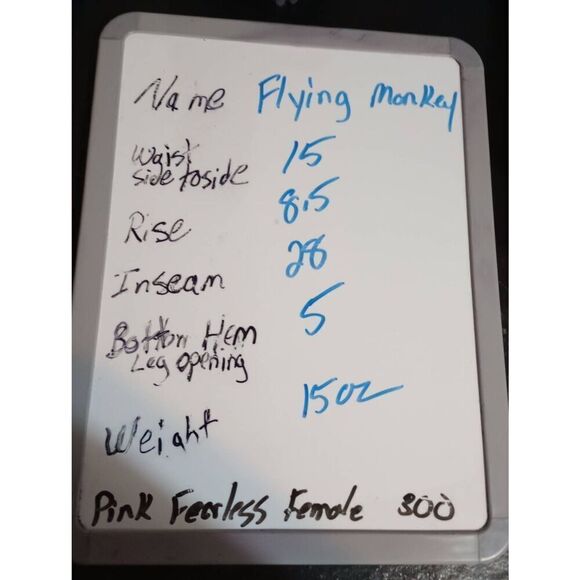 Name Flying Monkey
Waist 15
side to side
Rise 8.5
Inseam 28
Bottom Hem 5
Leg opening
Weight 15oz
Pink Fearless Female 300